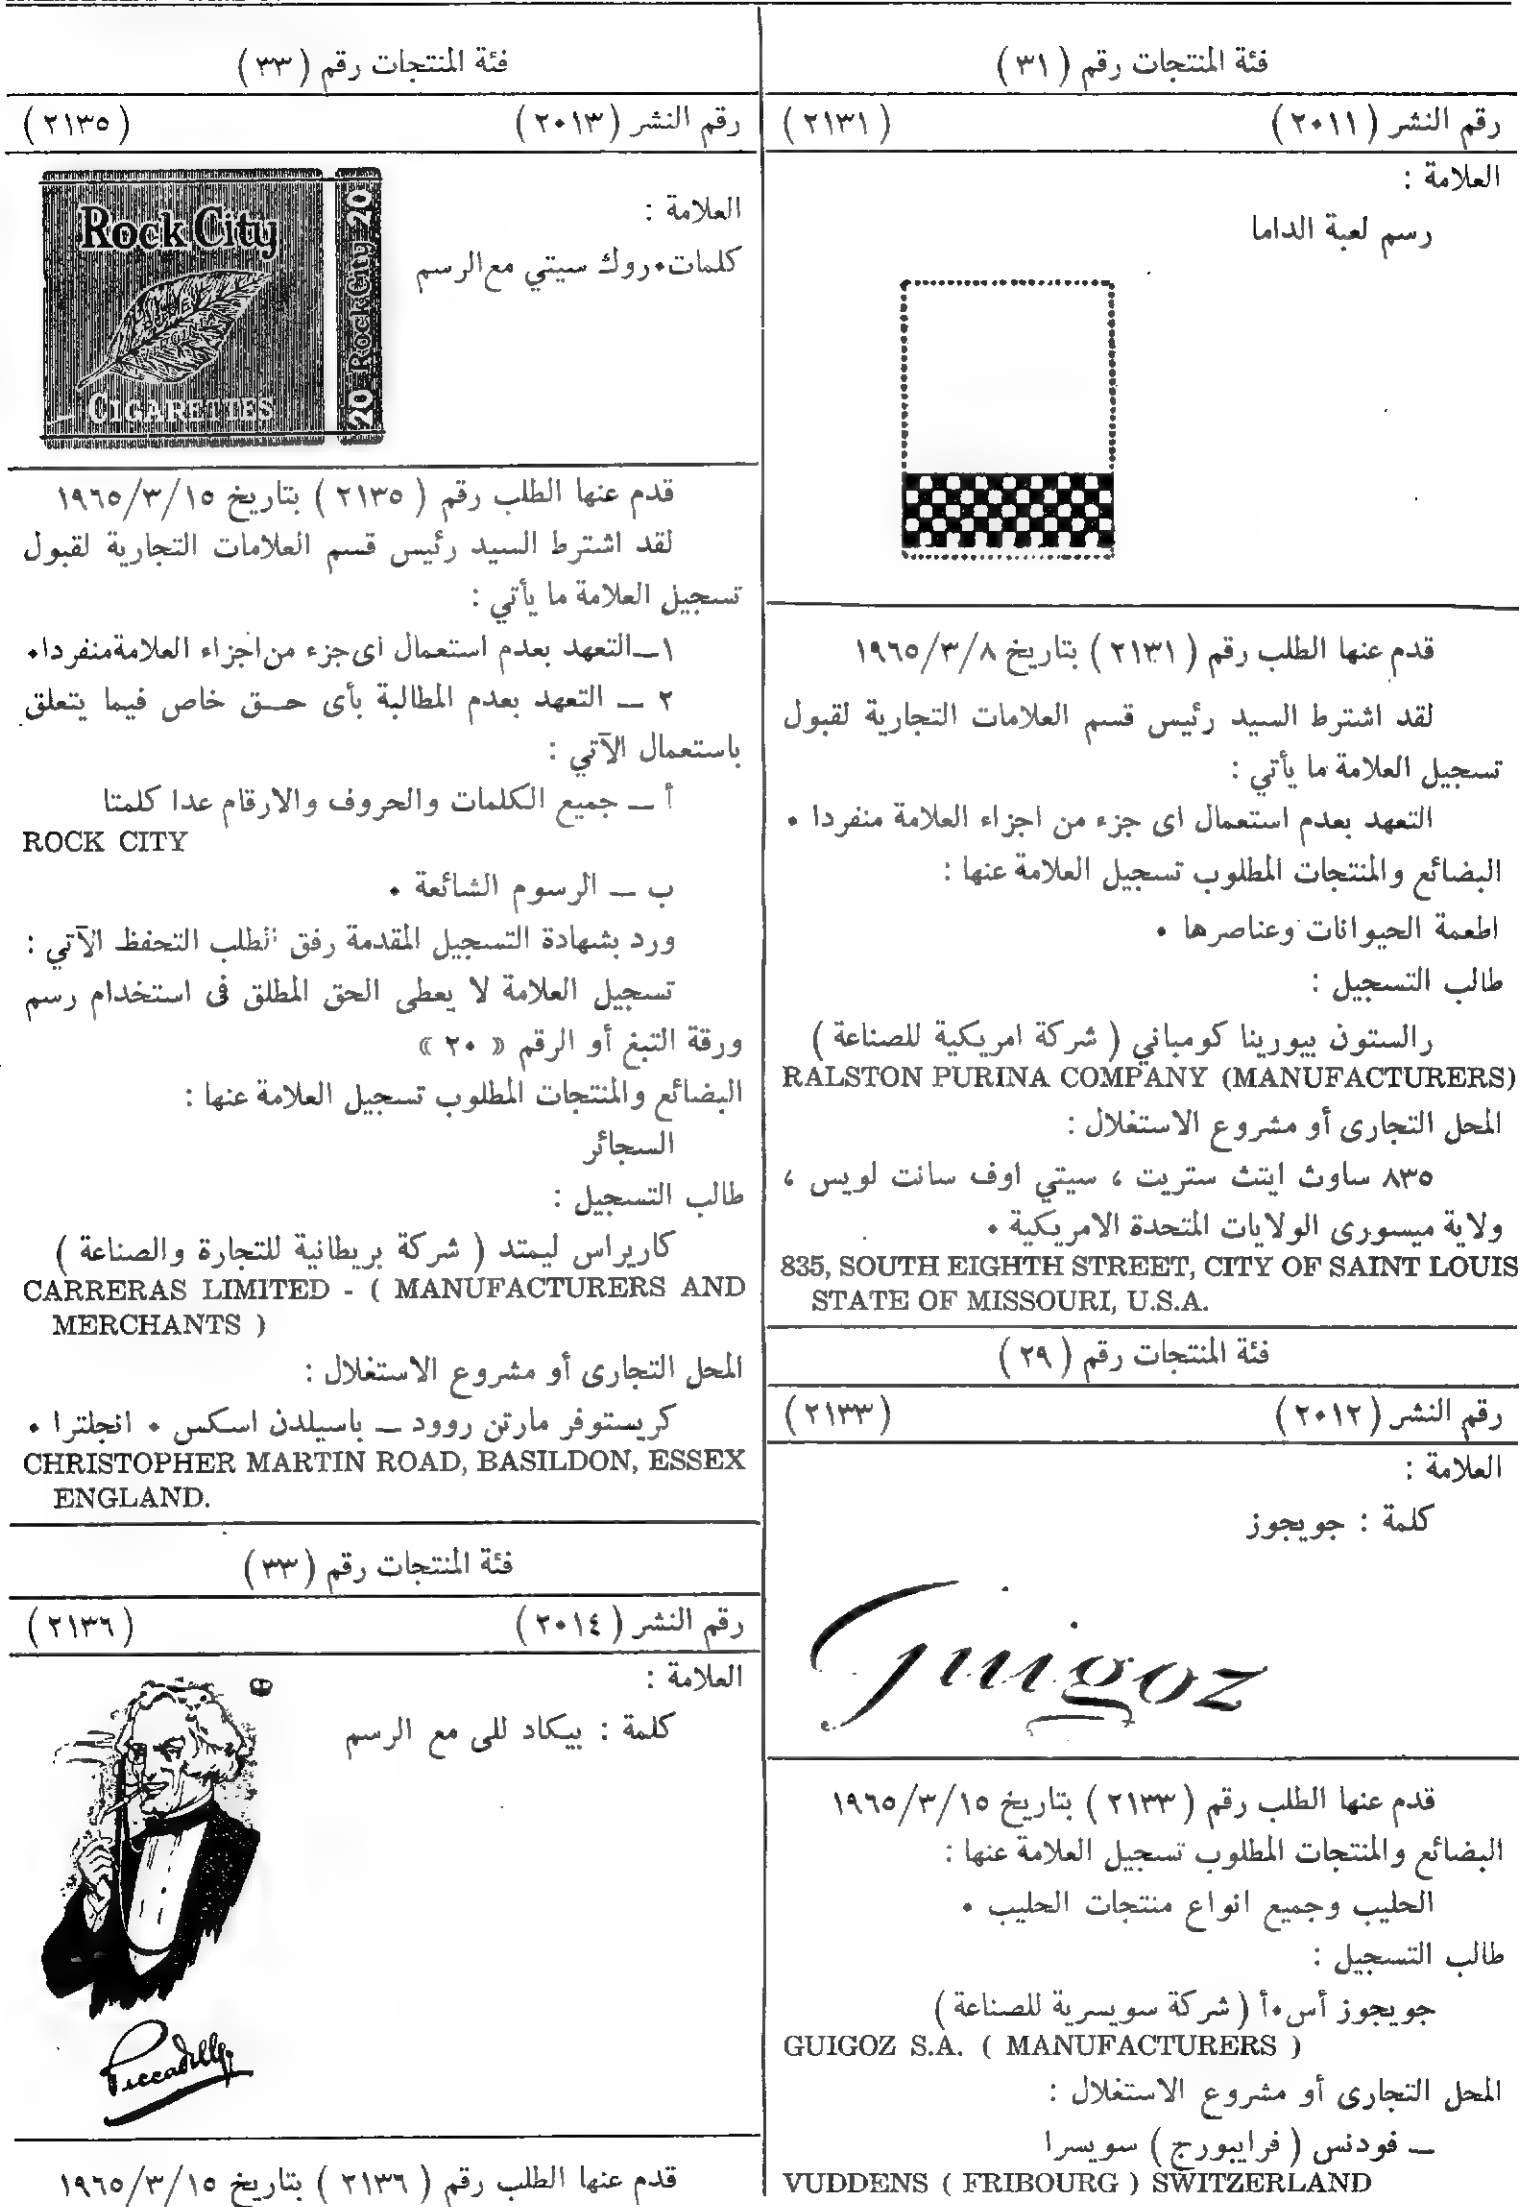 فئة المنتجات رقم ( ٣١ )
رقم النشر ( ٢٠١١ ) ( ٢١٣١ )
العلامة :
رسم لعبة الداما
قدم عنها الطلب رقم ( ٢١٣١ ) بتاريخ ١٩٦٥/٣/٨
لقد اشترط السيد رئيس قسم العلامات التجارية لقبول
تسجيل العلامة ما يأتي :
التعهد بعدم استعمال اى جزء من اجزاء العلامة منفردا ٠
البضائع والمنتجات المطلوب تسجيل العلامة عنها :
اطعمة الحيوانات وعناصرها ٠
طالب التسجيل :
رالستون بيورينا كومباني ( شركة امريكية للصناعة )
RALSTON PURINA COMPANY (MANUFACTURERS)
المحل التجارى أو مشروع الاستغلال :
٨٣٥ ساوث ايتث ستريت ، سيتي اوف سانت لويس ،
ولاية ميسورى الولايات المتحدة الامريكية ٠
835, SOUTH EIGHTH STREET, CITY OF SAINT LOUIS
STATE OF MISSOURI, U.S.A.
فئة المنتجات رقم ( ٢٩ )
رقم النشر ( ٢٠١٢ ) ( ٢١٣٣ )
العلامة :
كلمة : جويجوز
Guigoz
قدم عنها الطلب رقم ( ٢١٣٣ ) بتاريخ ١٩٦٥/٣/١٥
البضائع والمنتجات المطلوب تسجيل العلامة عنها :
الحليب وجميع انواع منتجات الحليب ٠
طالب التسجيل :
جويجوز أس٠أ ( شركة سويسرية للصناعة )
GUIGOZ S.A. ( MANUFACTURERS )
المحل التجارى أو مشروع الاستغلال :
ــ فودنس ( فرايبورج ) سويسرا
VUDDENS ( FRIBOURG ) SWITZERLAND
فئة المنتجات رقم ( ٣٣ )
رقم النشر ( ٢٠١٣ ) ( ٢١٣٥ )
العلامة :
كلمات٠روك سيتي مع الرسم
Rock City
CIGARETTES
20 Rock City 20
قدم عنها الطلب رقم ( ٢١٣٥ ) بتاريخ ١٩٦٥/٣/١٥
لقد اشترط السيد رئيس قسم العلامات التجارية لقبول
تسجيل العلامة ما يأتي :
١ــالتعهد بعدم استعمال اى جزء من اجزاء العلامة منفردا٠
٢ ــ التعهد بعدم المطالبة بأى حـق خاص فيما يتعلق
باستعمال الآتي :
أ ــ جميع الكلمات والحروف والارقام عدا كلمتا
ROCK CITY
ب ــ الرسوم الشائعة ٠
ورد بشهادة التسجيل المقدمة رفق الطلب التحفظ الآتي :
تسجيل العلامة لا يعطى الحق المطلق فى استخدام رسم
ورقة التبغ أو الرقم « ٢٠ »
البضائع والمنتجات المطلوب تسجيل العلامة عنها :
السجائر
طالب التسجيل :
كاريراس ليمتد ( شركة بريطانية للتجارة والصناعة )
CARRERAS LIMITED - ( MANUFACTURERS AND
MERCHANTS )
المحل التجارى أو مشروع الاستغلال :
كريستوفر مارتن روود ــ باسيلدن اسكس ٠ انجلترا ٠
CHRISTOPHER MARTIN ROAD, BASILDON, ESSEX
ENGLAND.
فئة المنتجات رقم ( ٣٣ )
رقم النشر ( ٢٠١٤ ) ( ٢١٣٦ )
العلامة :
كلمة : بيكاد للى مع الرسم
Piccadilly
قدم عنها الطلب رقم ( ٢١٣٦ ) بتاريخ ١٩٦٥/٣/١٥